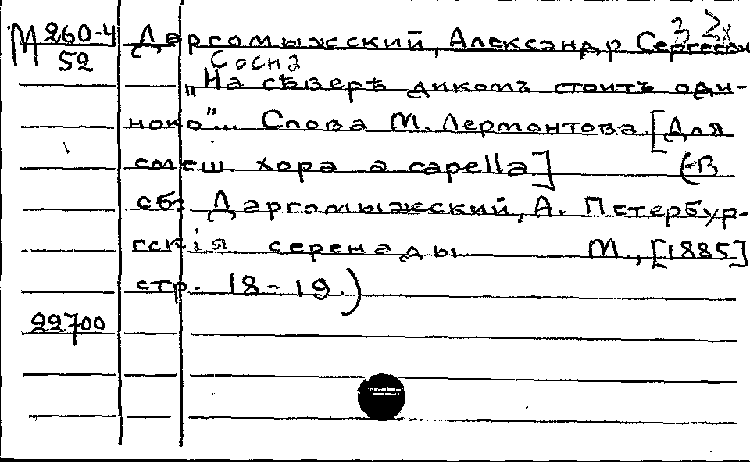 М 260-4
52
Даргомыжский, Александр Сергеевич
Сосна
„На сѣверѣ дикомъ стоитъ оди-
ноко"... Слова М. Лермонтова. [Для
смеш. хора a capella] (В
сб: Даргомыжский, А. Петербур-
гскія серенады М., [1885]
стр. 18-19.)
22700